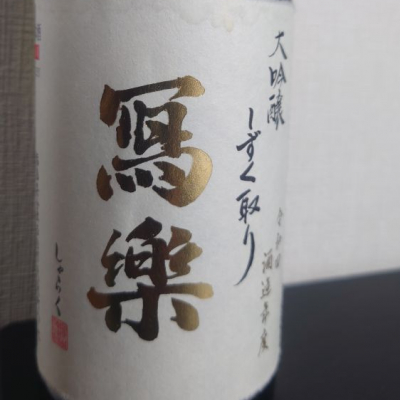 大吟醸
しずく取り
酒造年度
寫樂
しゃらく